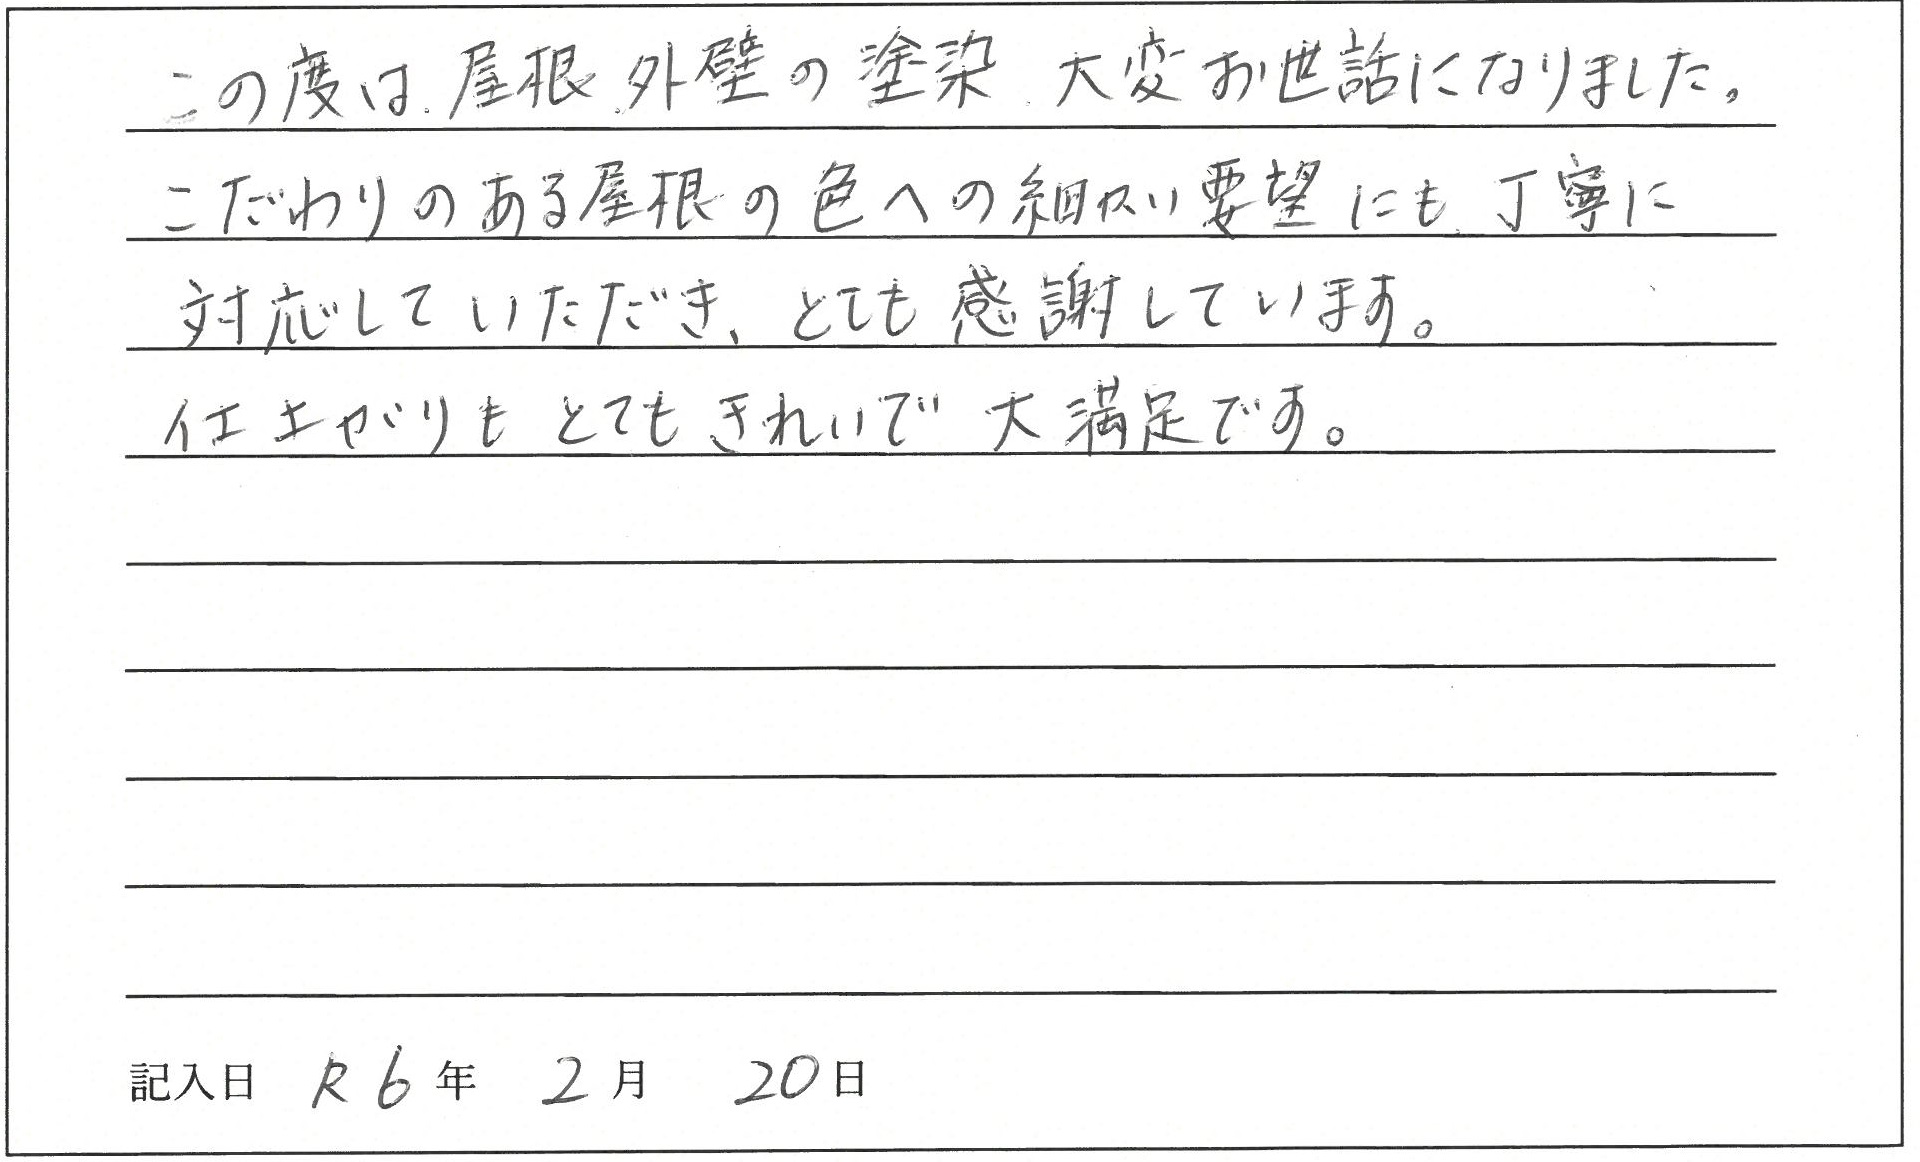 この度は、屋根、外壁の塗染、大変お世話になりました。
こだわりのある屋根の色への細かい要望にも、丁寧に
対応していただき、とても感謝しています。
仕上がりもとてもきれいで大満足です。
記入日 R6年 2月 20日